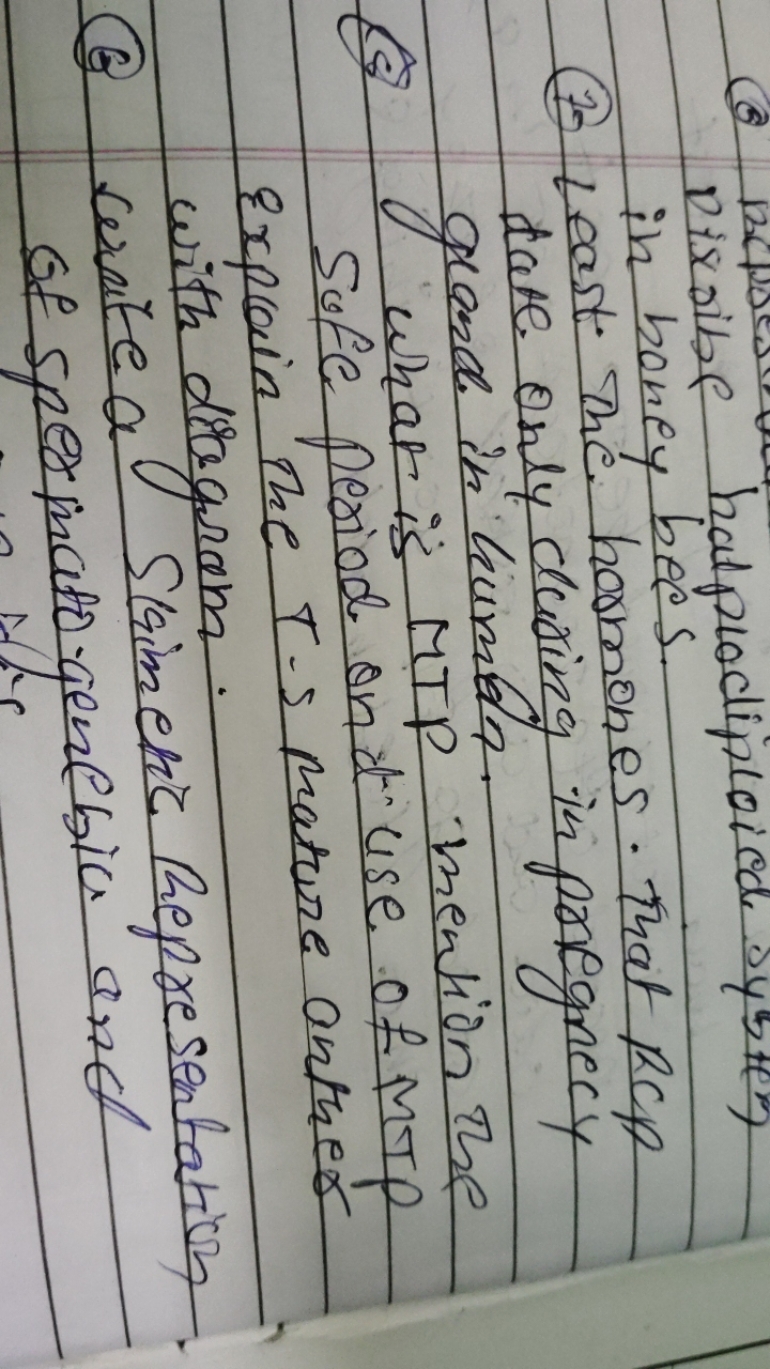 Dixribe halplodiploied system
in honey bees.
7 Least The hormones. That Rep
date only during in poregnecy
gland in human.
what is MTP mention the
Safe period and use of MTP
explain The T-S mature anther
with diagram.
write a Skimetic Representation
of spermato-genesis and